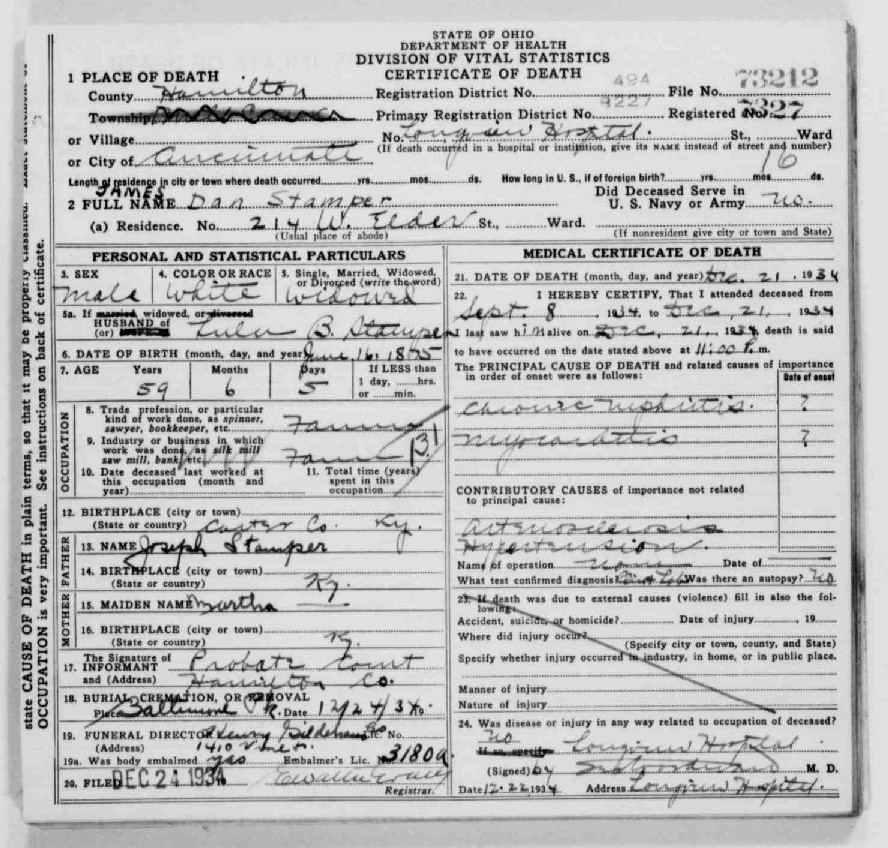 STATE OF OHIO
DEPARTMENT OF HEALTH
DIVISION OF VITAL STATISTICS
CERTIFICATE OF DEATH
1 PLACE OF DEATH
County Hamilton Registration District No. 494 File No. 73212
Township Primary Registration District No. 8227 Registered No. 7327
or Village No. Longview Hospital. St., Ward
(If death occurred in a hospital or institution, give its NAME instead of street and number)
or City of Cincinnati 16
Length of residence in city or town where death occurred yrs. mos. ds. How long in U. S., if of foreign birth? yrs. mos. ds.
JAMES
2 FULL NAME Dan Stamper Did Deceased Serve in U. S. Navy or Army no.
(a) Residence. No. 214 W. Elder St., Ward.
(Usual place of abode) (If nonresident give city or town and State)
PERSONAL AND STATISTICAL PARTICULARS
3. SEX 4. COLOR OR RACE 5. Single, Married, Widowed, or Divorced (write the word)
Male White Widowed
5a. If married, widowed, or divorced
HUSBAND of
(or) Lulu B. Stamper
6. DATE OF BIRTH (month, day, and year) June 16, 1875
7. AGE Years Months Days If LESS than
59 6 5 1 day, hrs. or min.
OCCUPATION
8. Trade profession, or particular kind of work done, as spinner, sawyer, bookkeeper, etc. Farmer
9. Industry or business in which work was done, as silk mill saw mill, bank, etc. Farm 131
10. Date deceased last worked at this occupation (month and year) 11. Total time (years) spent in this occupation
12. BIRTHPLACE (city or town)
(State or country) Carter Co. Ky.
FATHER
13. NAME Joseph Stamper
14. BIRTHPLACE (city or town)
(State or country) Ky.
MOTHER
15. MAIDEN NAME Martha —
16. BIRTHPLACE (city or town)
(State or country) Ky.
17. The Signature of INFORMANT Probate Court
and (Address) Hamilton Co.
18. BURIAL, CREMATION, OR REMOVAL
Place Baltimore Pk. Date 12/24/34
19. FUNERAL DIRECTOR Henry Lic. No.
(Address) 1410 Vine St.
19a. Was body embalmed yes Embalmer's Lic. No. 3180a
20. FILED DEC 24 1934
Registrar.
MEDICAL CERTIFICATE OF DEATH
21. DATE OF DEATH (month, day, and year) Dec. 21, 1934
22. I HEREBY CERTIFY, That I attended deceased from
Sept. 8, 1934, to Dec, 21, 1934
I last saw him alive on Dec, 21, 1934 death is said
to have occurred on the date stated above at 11:00 P. m.
The PRINCIPAL CAUSE OF DEATH and related causes of importance in order of onset were as follows:
Date of onset
Chronic nephritis. ?
Myocarditis ?
CONTRIBUTORY CAUSES of importance not related to principal cause:
Arteriosclerosis
Hypertension.
Name of operation None Date of
What test confirmed diagnosis? Lab Was there an autopsy? No
23. If death was due to external causes (violence) fill in also the following:
Accident, suicide, or homicide? Date of injury , 19
Where did injury occur?
(Specify city or town, county, and State)
Specify whether injury occurred in industry, in home, or in public place.
Manner of injury
Nature of injury
24. Was disease or injury in any way related to occupation of deceased?
No
If so, specify Longview Hospital
(Signed) by M. D.
Date 12-22, 1934 Address Longview Hospital.
state CAUSE OF DEATH in plain terms, so that it may be properly classified. Exact statement of
OCCUPATION is very important. See instructions on back of certificate.